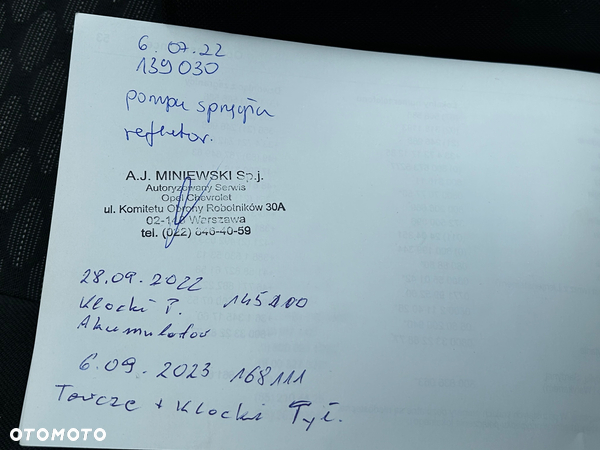 6.07.22
139030
pompa sprzęgła
reflektor.
A.J. MINIEWSKI Sp.j.
Autoryzowany Serwis
Opel Chevrolet
ul. Komitetu Obrony Robotników 30A
02-148 Warszawa
tel. (022) 846-40-59
28.09.2022
Klocki P. 145200
Akumulator
6.09.2023 168111
Tarcze + Klocki Tył.
OTOMOTO